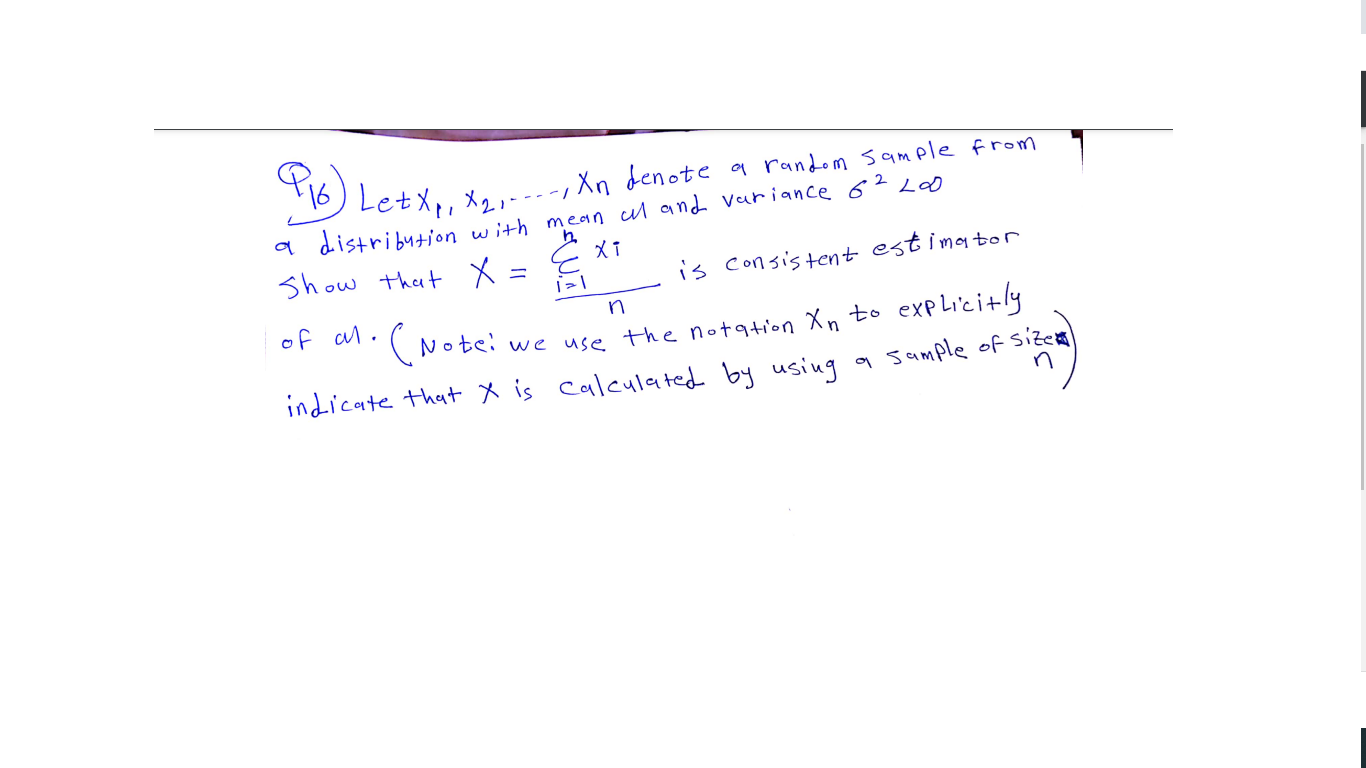 P16) Let X1, X2, ----, Xn denote a random sample from
a distribution with mean μ and variance σ² < ∞
Show that X = Σ_{i=1}^{n} xi / n is consistent estimator
of μ. (Note: we use the notation Xn to explicitly
indicate that X is calculated by using a sample of size n)